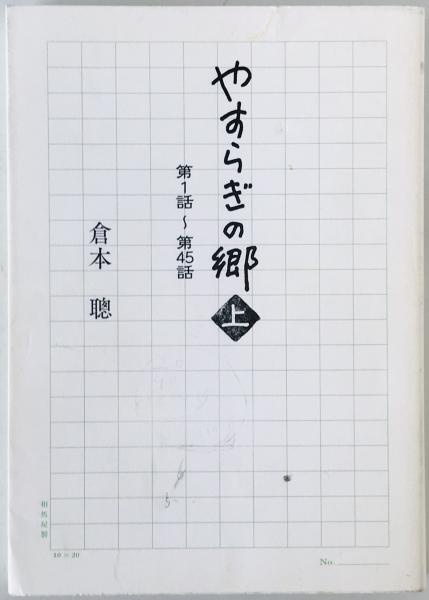 やすらぎの郷 上
第1話～第45話
倉本 聰
相馬屋製
10×20
No.